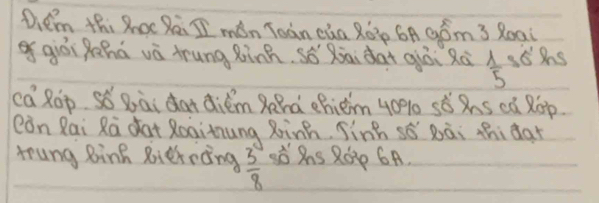 Điểm thi học kì II môn Toán của lớp 6A gồm 3 loại
giỏi khá và trung bình. Số bài đạt giỏi là 1/5 số hs
cả lớp. Số bài đạt điểm khá chiếm 40% số hs cả lớp.
Còn lại là đạt loại trung bình. Tính số bài thi đạt
trung bình biết rằng 3/8 số hs lớp 6A.